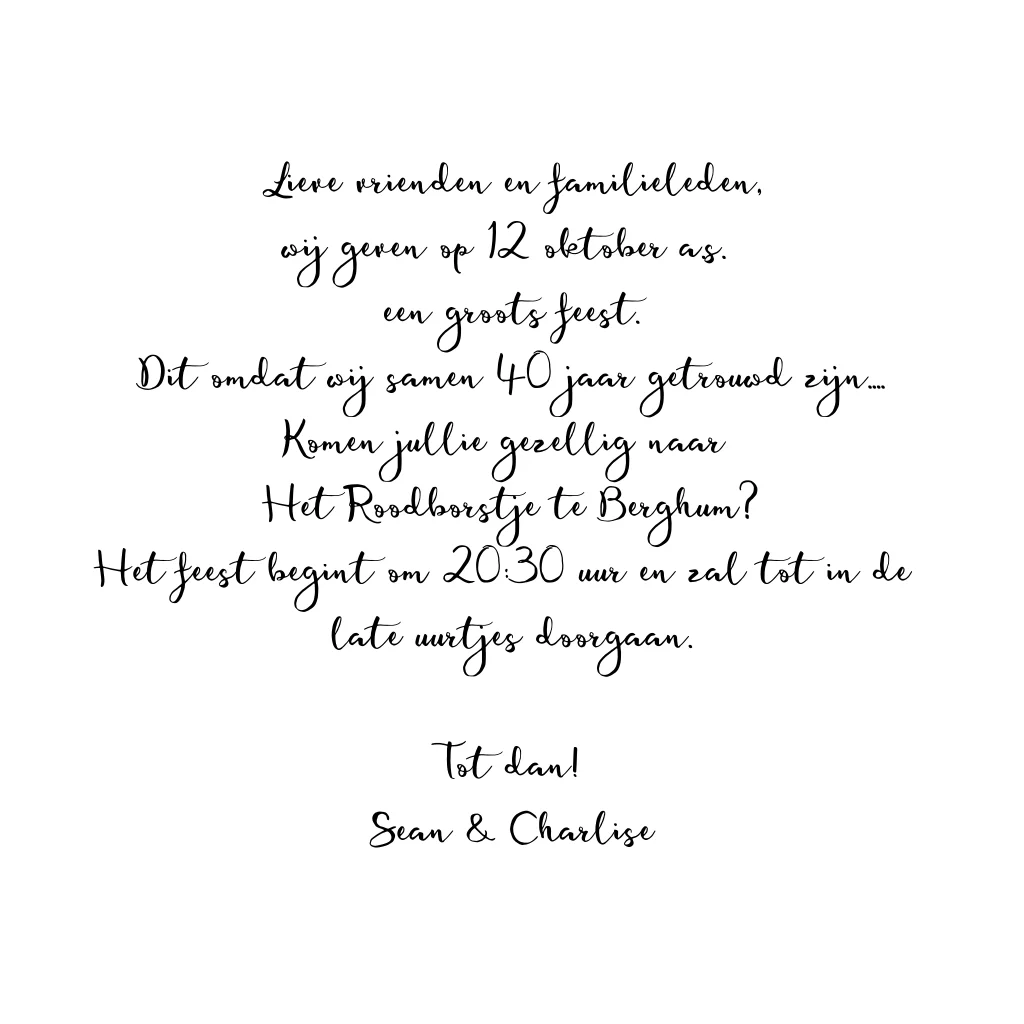 Lieve vrienden en familieleden,
wij geven op 12 oktober a.s.
een groots feest.
Dit omdat wij samen 40 jaar getrouwd zijn....
Komen jullie gezellig naar
Het Roodborstje te Berghum?
Het feest begint om 20:30 uur en zal tot in de
late uurtjes doorgaan.
Tot dan!
Sean & Charlise